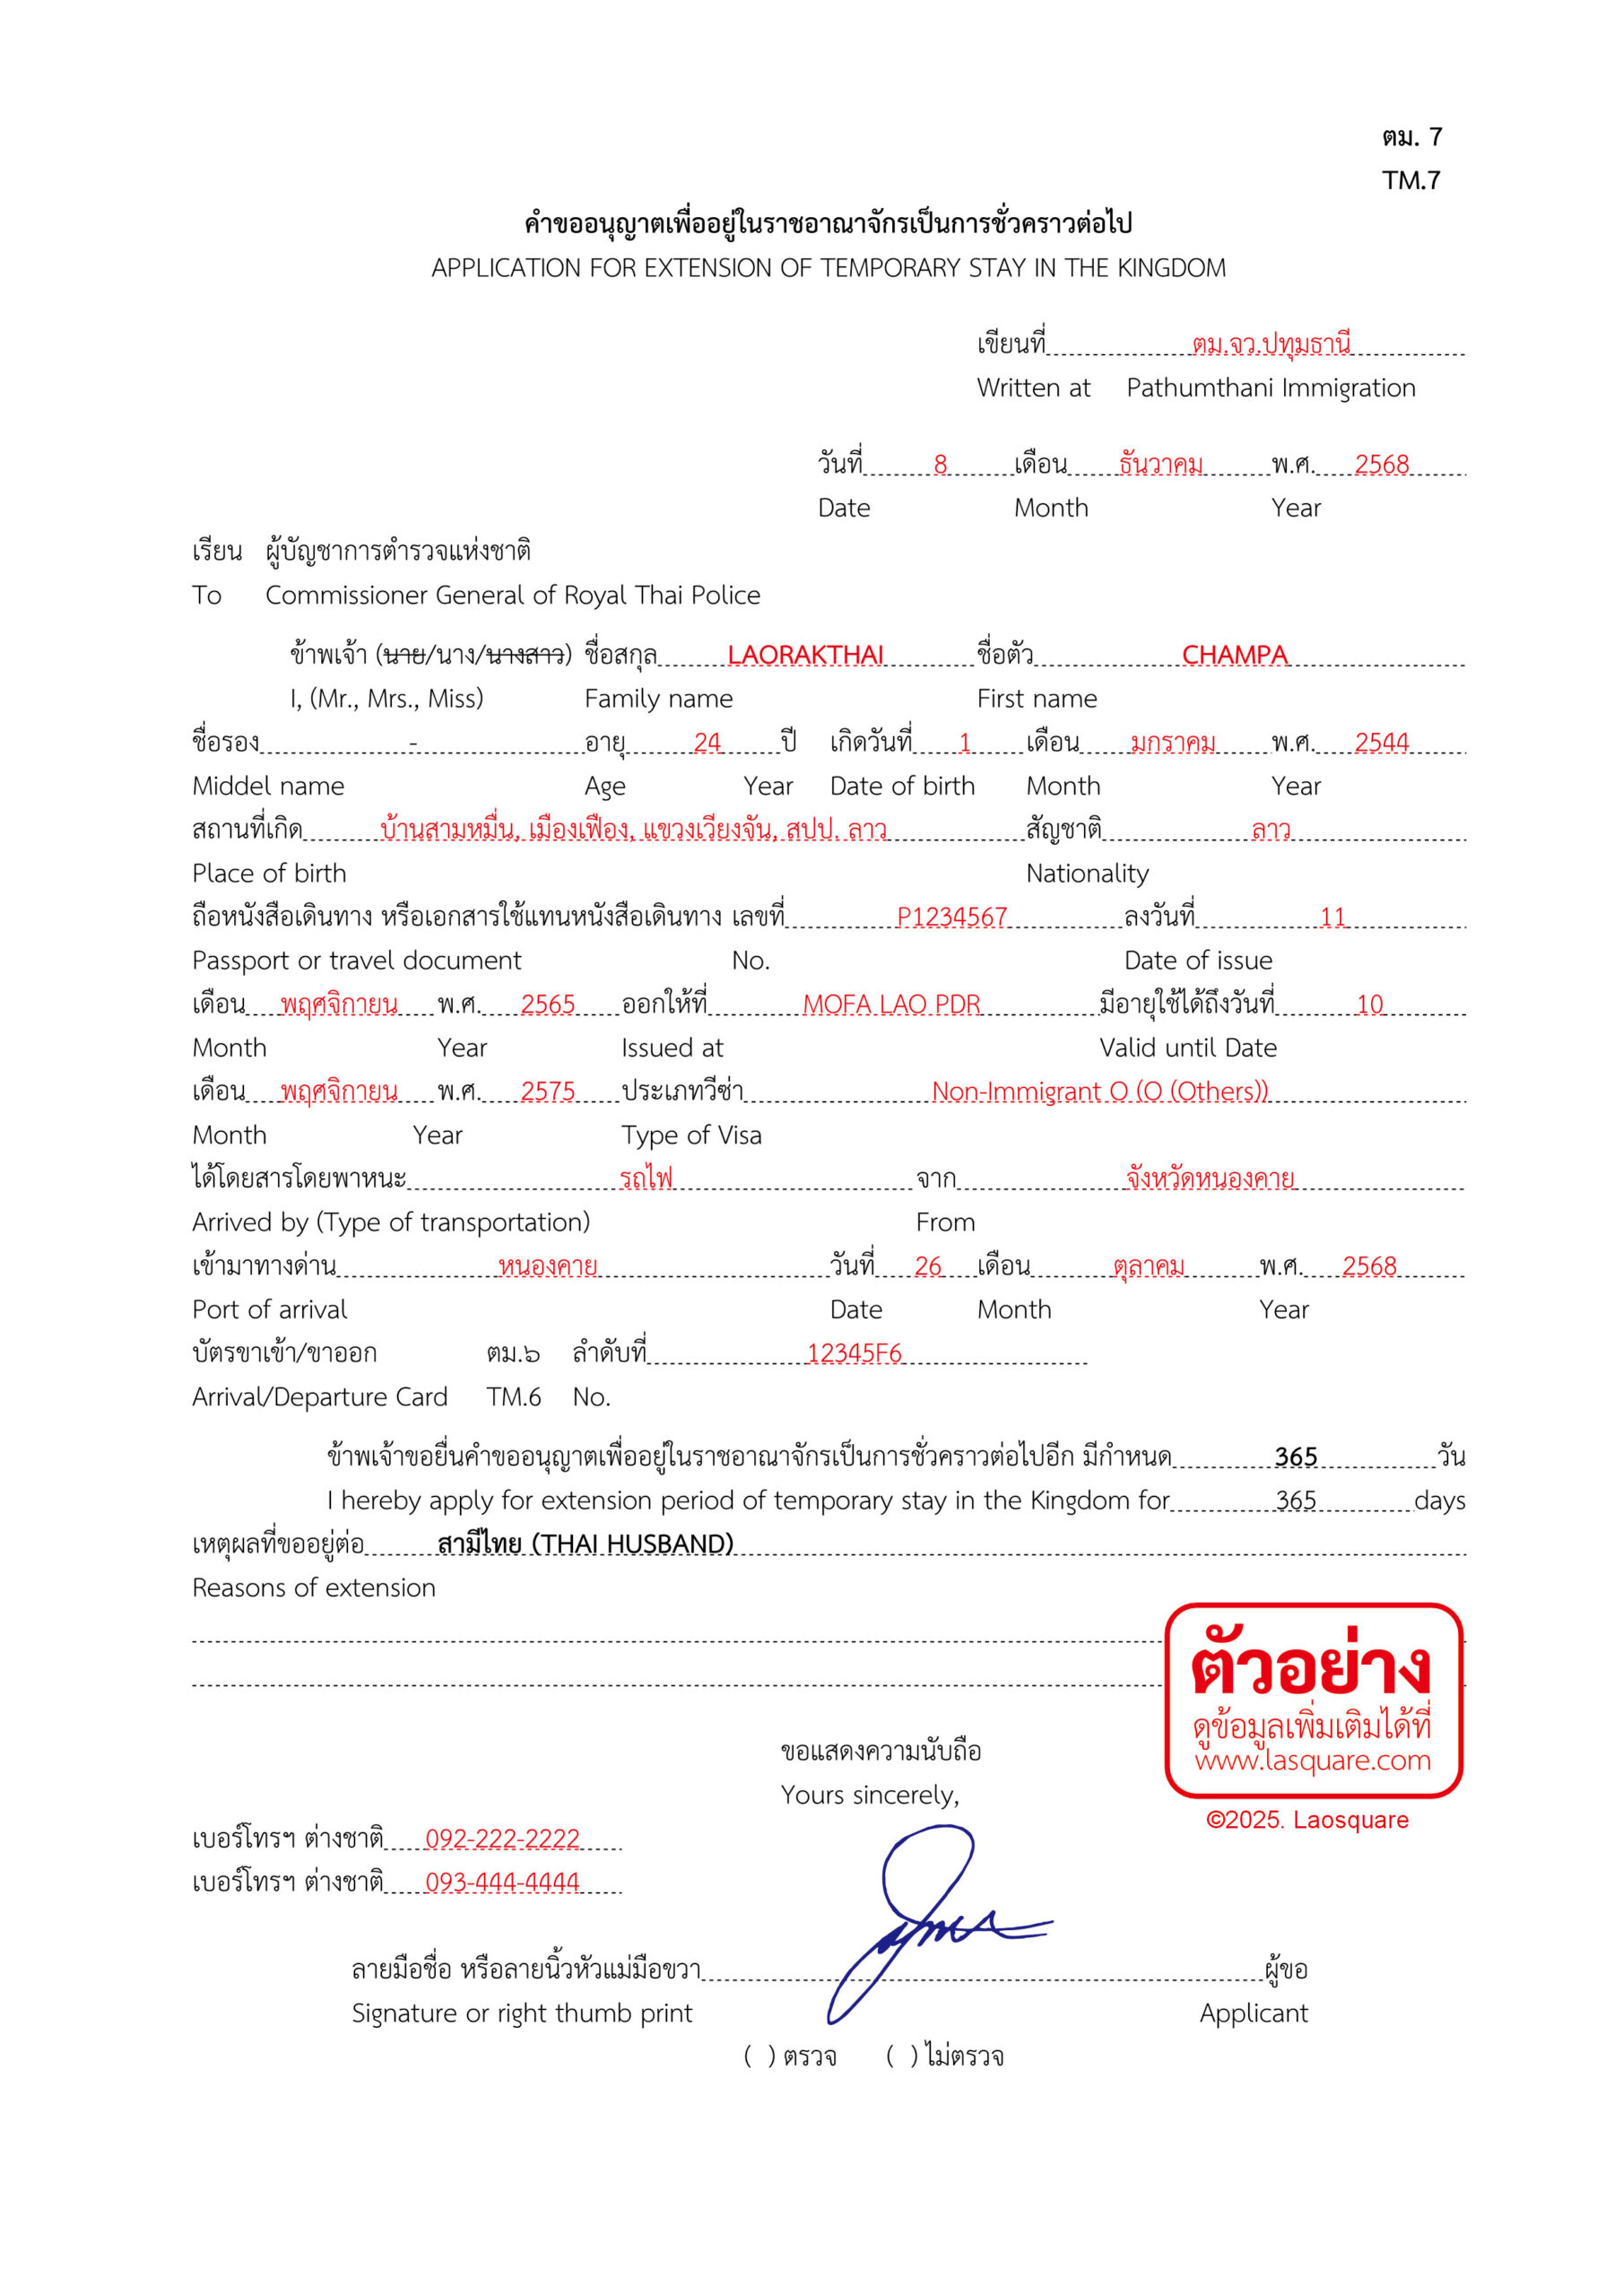 ตม. 7
TM.7
คำขออนุญาตเพื่ออยู่ในราชอาณาจักรเป็นการชั่วคราวต่อไป
APPLICATION FOR EXTENSION OF TEMPORARY STAY IN THE KINGDOM
เขียนที่ ตม.จว.ปทุมธานี
Written at Pathumthani Immigration
วันที่ 8 เดือน ธันวาคม พ.ศ. 2568
Date Month Year
เรียน ผู้บัญชาการตำรวจแห่งชาติ
To Commissioner General of Royal Thai Police
ข้าพเจ้า (นาย/นาง/นางสาว) ชื่อสกุล LAORAKTHAI ชื่อตัว CHAMPA
I, (Mr., Mrs., Miss) Family name First name
ชื่อรอง - อายุ 24 ปี เกิดวันที่ 1 เดือน มกราคม พ.ศ. 2544
Middel name Age Year Date of birth Month Year
สถานที่เกิด บ้านสามหมื่น, เมืองเฟือง, แขวงเวียงจัน, สปป. ลาว สัญชาติ ลาว
Place of birth Nationality
ถือหนังสือเดินทาง หรือเอกสารใช้แทนหนังสือเดินทาง เลขที่ P1234567 ลงวันที่ 11
Passport or travel document No. Date of issue
เดือน พฤศจิกายน พ.ศ. 2565 ออกให้ที่ MOFA LAO PDR มีอายุใช้ได้ถึงวันที่ 10
Month Year Issued at Valid until Date
เดือน พฤศจิกายน พ.ศ. 2575 ประเภทวีซ่า Non-Immigrant O (O (Others))
Month Year Type of Visa
ได้โดยสารโดยพาหนะ รถไฟ จาก จังหวัดหนองคาย
Arrived by (Type of transportation) From
เข้ามาทางด่าน หนองคาย วันที่ 26 เดือน ตุลาคม พ.ศ. 2568
Port of arrival Date Month Year
บัตรขาเข้า/ขาออก ตม.๖ ลำดับที่ 12345F6
Arrival/Departure Card TM.6 No.
ข้าพเจ้าขอยื่นคำขออนุญาตเพื่ออยู่ในราชอาณาจักรเป็นการชั่วคราวต่อไปอีก มีกำหนด 365 วัน
I hereby apply for extension period of temporary stay in the Kingdom for 365 days
เหตุผลที่ขออยู่ต่อ สามีไทย (THAI HUSBAND)
Reasons of extension
ตัวอย่าง
ดูข้อมูลเพิ่มเติมได้ที่
www.lasquare.com
©2025. Laosquare
ขอแสดงความนับถือ
Yours sincerely,
เบอร์โทรฯ ต่างชาติ 092-222-2222
เบอร์โทรฯ ต่างชาติ 093-444-4444
ลายมือชื่อ หรือลายนิ้วหัวแม่มือขวา ผู้ขอ
Signature or right thumb print Applicant
( ) ตรวจ ( ) ไม่ตรวจ